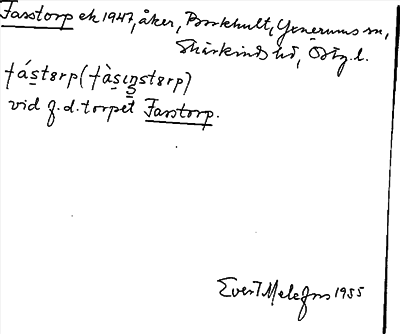 Fasstorp ek 1947, åker, Borkhult, Yxnerums sn,
Skärkinds hd, Östg. l.
fástɵrp (fàsıŋstɵrp)
vid f.d. torpet Fasstorp.
Evert Melefors 1955